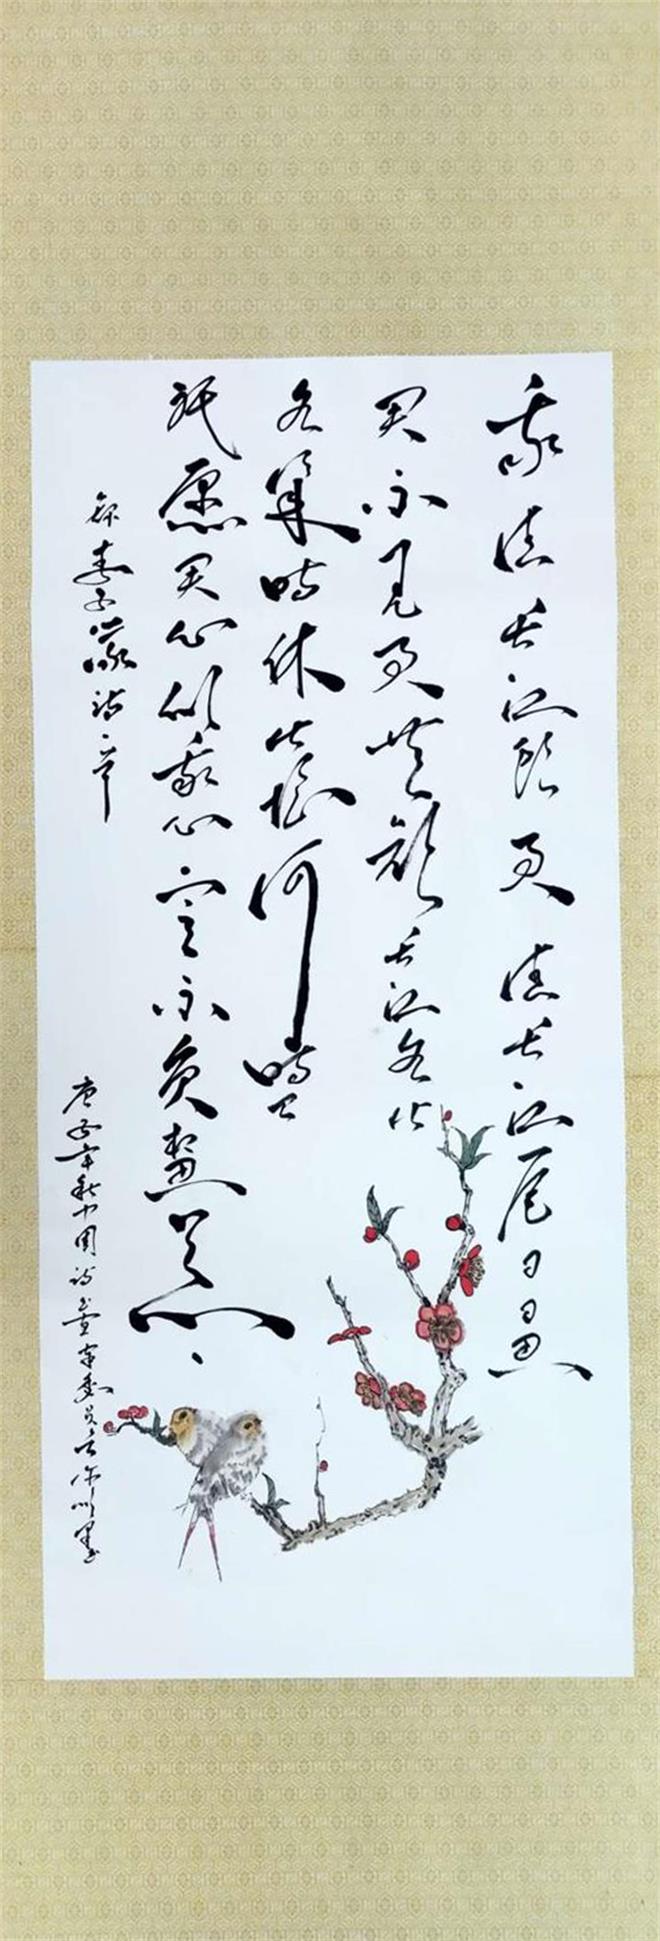 我住长江头君住长江尾日日思
君不见君共饮长江水此
水几时休此恨何时已
祇愿君心似我心定不负相思意
录李之仪诗一章
庚子年秋中国诗书画家委员会